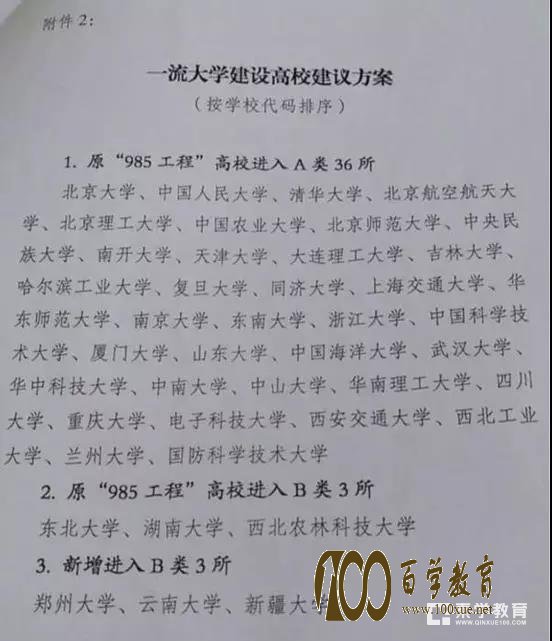 附件2:
一流大学建设高校建议方案
(按学校代码排序)
1. 原“985工程”高校进入A类36所
北京大学、中国人民大学、清华大学、北京航空航天大
学、北京理工大学、中国农业大学、北京师范大学、中央民
族大学、南开大学、天津大学、大连理工大学、吉林大学、
哈尔滨工业大学、复旦大学、同济大学、上海交通大学、华
东师范大学、南京大学、东南大学、浙江大学、中国科学技
术大学、厦门大学、山东大学、中国海洋大学、武汉大学、
华中科技大学、中南大学、中山大学、华南理工大学、四川
大学、重庆大学、电子科技大学、西安交通大学、西北工业
大学、兰州大学、国防科学技术大学
2. 原“985工程”高校进入B类3所
东北大学、湖南大学、西北农林科技大学
3. 新增进入B类3所
郑州大学、云南大学、新疆大学
100百学教育
www.100xue.net
教育
WWW.QINXUE100.COM